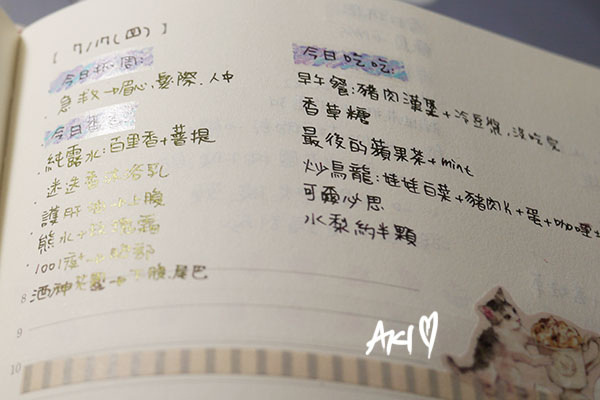 [ 7/17(四) ]
今日
. 急救→眉心.髮際.人中
今日
. 純露水:百里香+菩提
. 迷迭香 乳
. 護肝 上腹
. 熊水+ 霜
. 1001夜
8 酒神花園→下腹.尾巴
9
10
今日吃吃:
早午餐:豬肉漢堡+冷豆漿.沒吃完
香草糖
最後的蘋果茶+mint
炒烏龍:娃娃白菜+豬肉片+蛋+咖哩
可爾必思
水梨約半顆
AKI♡